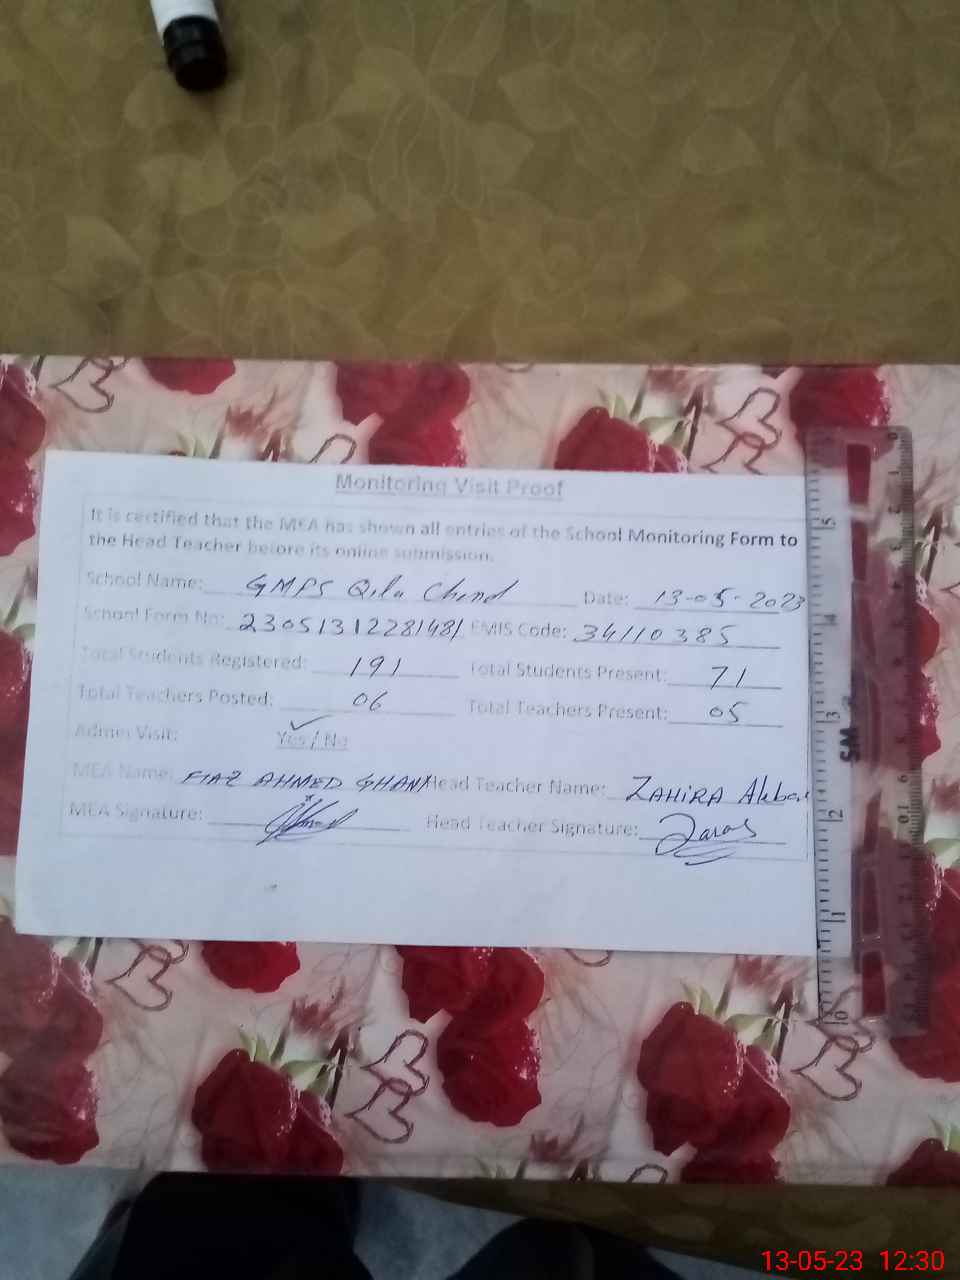 Monitoring Visit Proof
It is certified that the MEA has shown all entries of the School Monitoring Form to
the Head Teacher before its online submission.
School Name: GMPS Qila Chand Date: 13-05-2023
School Form No: 2305131228148/ EMIS Code: 34110385
Total Students Registered: 191 Total Students Present: 71
Total Teachers Posted: 06 Total Teachers Present: 05
Admin Visit: Yes / No
MEA Name: FIAZ AHMED GHANI Head Teacher Name: ZAHIRA Akbar
MEA Signature: Head Teacher Signature:
13-05-23 12:30